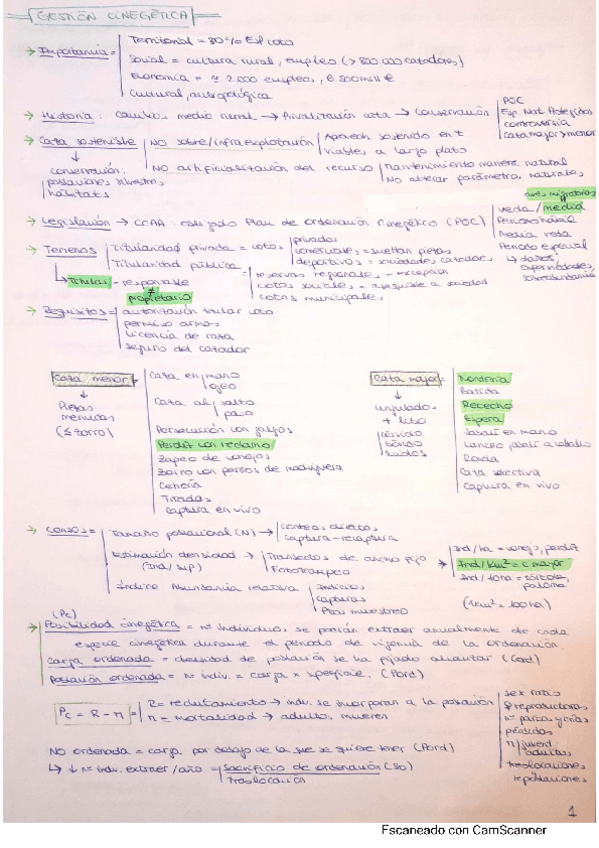 GESTIÓN CINEGÉTICA
→ Importancia = Territorial → 80% Esp coto
Social = cultura rural, empleo (> 800 000 cazadores)
Economía = ≈ 2.000 empleos, 6 500 mill €
Cultural, antropológica
→ Historia: cambios medio rural → Privatización caza → Conservación
POC
Esp Nat Protegidos
controversia
caza mayor > menor
→ Caza sostenible
NO sobre/infraexplotación
Aprovech sostenido en t
viable, a largo plazo
↓
conservación:
poblaciones silvestres
hábitats
NO artificialización del recurso
mantenimiento manera natural
No alterar parámetros naturales
aves migratorias
→ Legislación → CCAA: obligado Plan de Ordenación Cinegético (POC)
veda / media
Periodo hábil
Media veda
Periodo especial
↳ daños,
enfermedades,
sobreabundancia
→ Terrenos
Titularidad privada = cotos
privados
comerciales = sueltan piezas
deportivos = sociedades cazadores
Titularidad pública
reservas regionales
cotos sociales = asequible a sociedad
cotos municipales
↳ Titular = responsable
≠
propietario
→ Requisitos = autorización titular coto
permiso armas
licencia de caza
seguro del cazador
Caza menor =
↓
Piezas
menudas
(≤ zorro)
Caza en mano
ojeo
Caza al salto
paso
Persecución con galgos
Perdiz con reclamo
Zapeo de conejos
Zorro con perros de madriguera
Cetrería
Tiradas
Captura en vivo
Caza mayor =
↓
ungulados
+ lobo
cérvidos
bóvidos
suidos
Montería
Batida
Rececho
Espera
Jabalí en mano
Lanceo jabalí a caballo
Ronda
Caza selectiva
Captura en vivo
→ Censos =
Tamaño poblacional (N) → conteos directos
captura-recaptura
Estimación densidad → Transectos de ancho fijo
(Ind/sup)
Fototrampeo
Índice Abundancia relativa
Indicios
capturas
Ptos muestreo
Ind/ha = conejo, perdiz
Ind/km² = c mayor
Ind/10ha = tórtola,
paloma
(1km² = 100ha)
(Pc)
→ Posibilidad cinegética = nº individuos se podrán extraer anualmente de cada
especie cinegética durante el periodo de vigencia de la ordenación
Carga ordenada = densidad de población se ha fijado alcanzar (Cord)
Población ordenada = nº indiv. = carga x superficie. (Pord)
Pc = R - n =
R = reclutamiento → indiv. se incorporan a la población
n = mortalidad → adultos mueren
sex ratio
♀ reproductoras
nº partos y crías
pérdidas
n juvenil
adultas
traslocaciones
repoblaciones
NO ordenada = carga por debajo de la que se quiere tener (Pord)
↳ ↓ nº indiv. extraer/año = sacrificio de ordenación (So)
traslocación
1
Escaneado con CamScanner